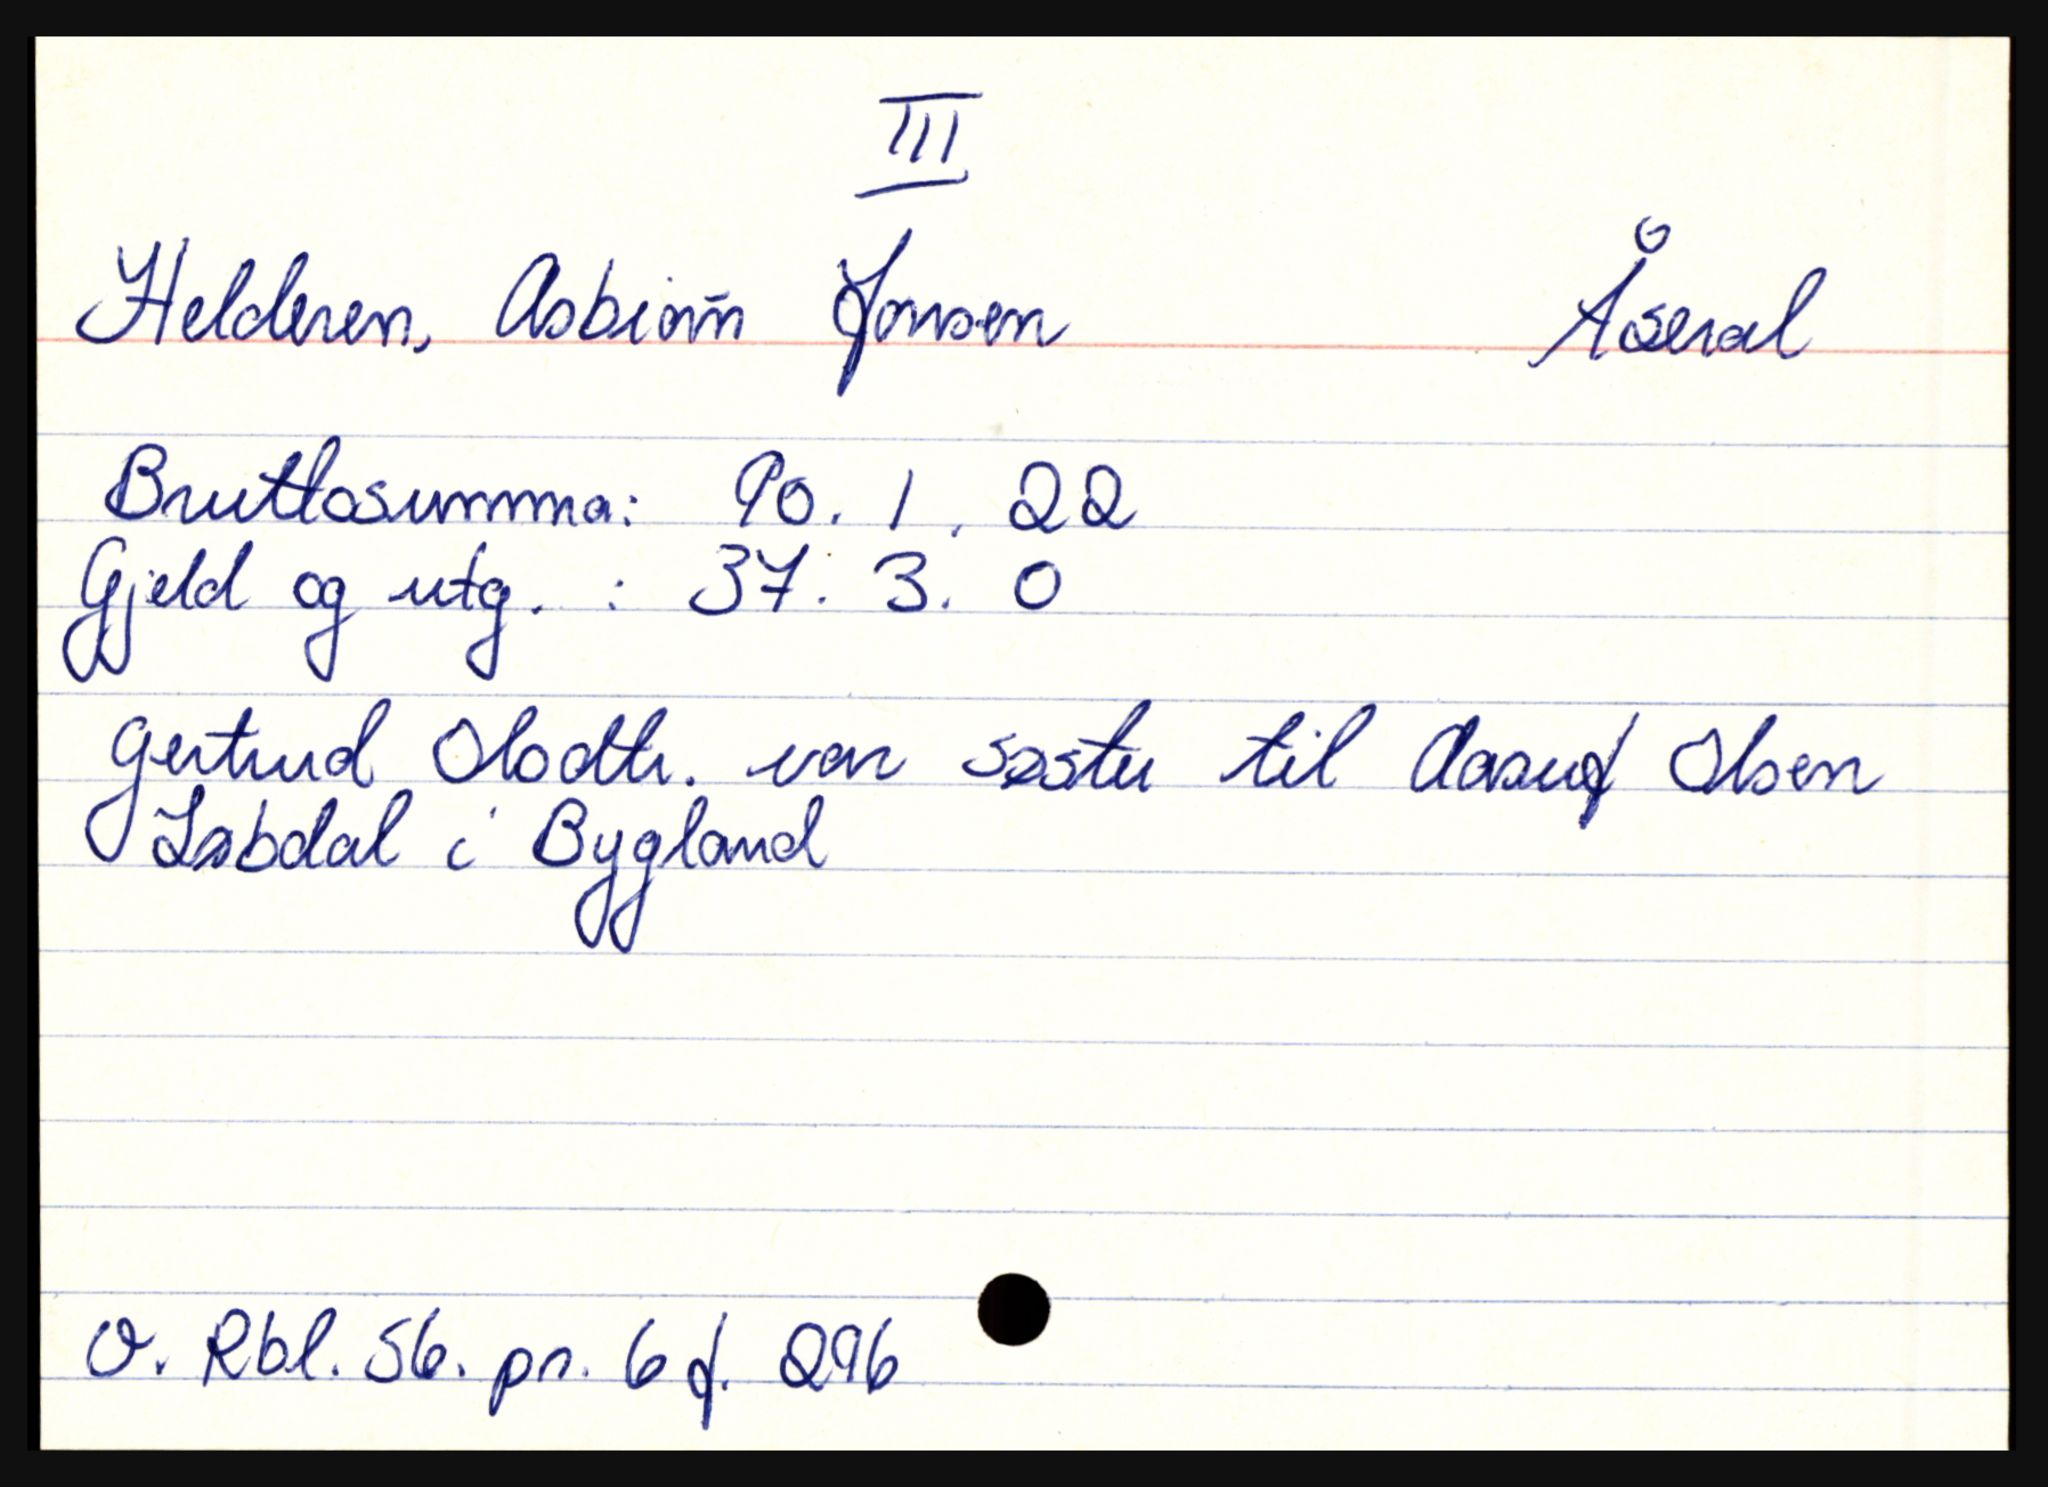 III
Helderen, Asbiørn Jonsen Åseral
Bruttosumma: 90. 1. 22
Gjeld og utg. : 37. 3. 0
Gertrud Olsdtr. var søster til Aasuf Olsen
Løbdal i Bygland
O. Rbl. 56. pr. 6 f. 296